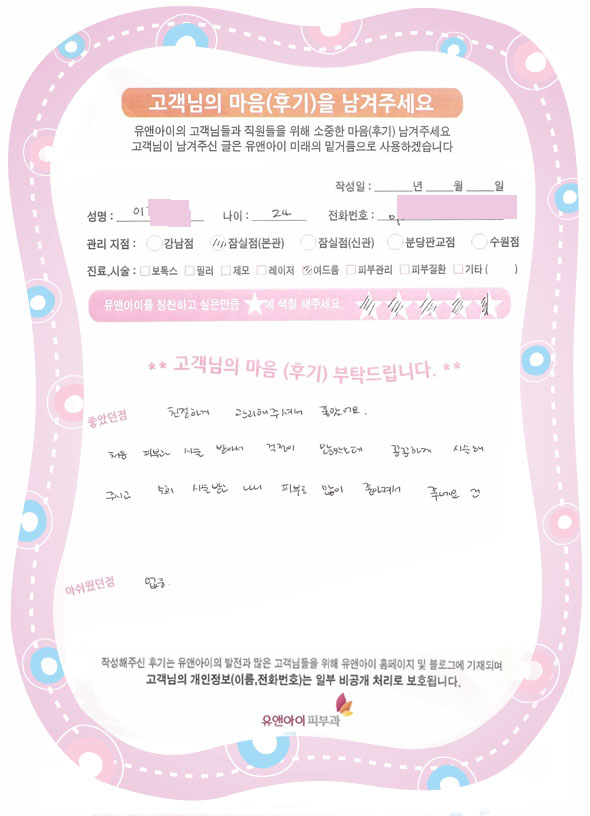 고객님의 마음(후기)을 남겨주세요
유앤아이의 고객님들과 직원들을 위해 소중한 마음(후기) 남겨주세요
고객님이 남겨주신 글은 유앤아이 미래의 밑거름으로 사용하겠습니다
작성일 : ______년 ____월 ____일
성명 : 이 나이 : 24 전화번호 :
관리 지점 : 강남점 잠실점(본관) 잠실점(신관) 분당판교점 수원점
진료,시술 : 보톡스 필러 제모 레이저 여드름 피부관리 피부질환 기타 ( )
유앤아이를 칭찬하고 싶은만큼 ★에 색칠 해주세요.
** 고객님의 마음 (후기) 부탁드립니다. **
좋았던점 친절하게 관리해주셔서 좋았어요.
처음 피부과 시술 받아서 걱정이 많았는데 꼼꼼하게 시술해
주시고 시술받고 나니 피부도 많이 좋아져서 좋네요
아쉬웠던점 없음.
작성해주신 후기는 유앤아이의 발전과 많은 고객님들을 위해 유앤아이 홈페이지 및 블로그에 기재되며
고객님의 개인정보(이름,전화번호)는 일부 비공개 처리로 보호됩니다.
유앤아이피부과